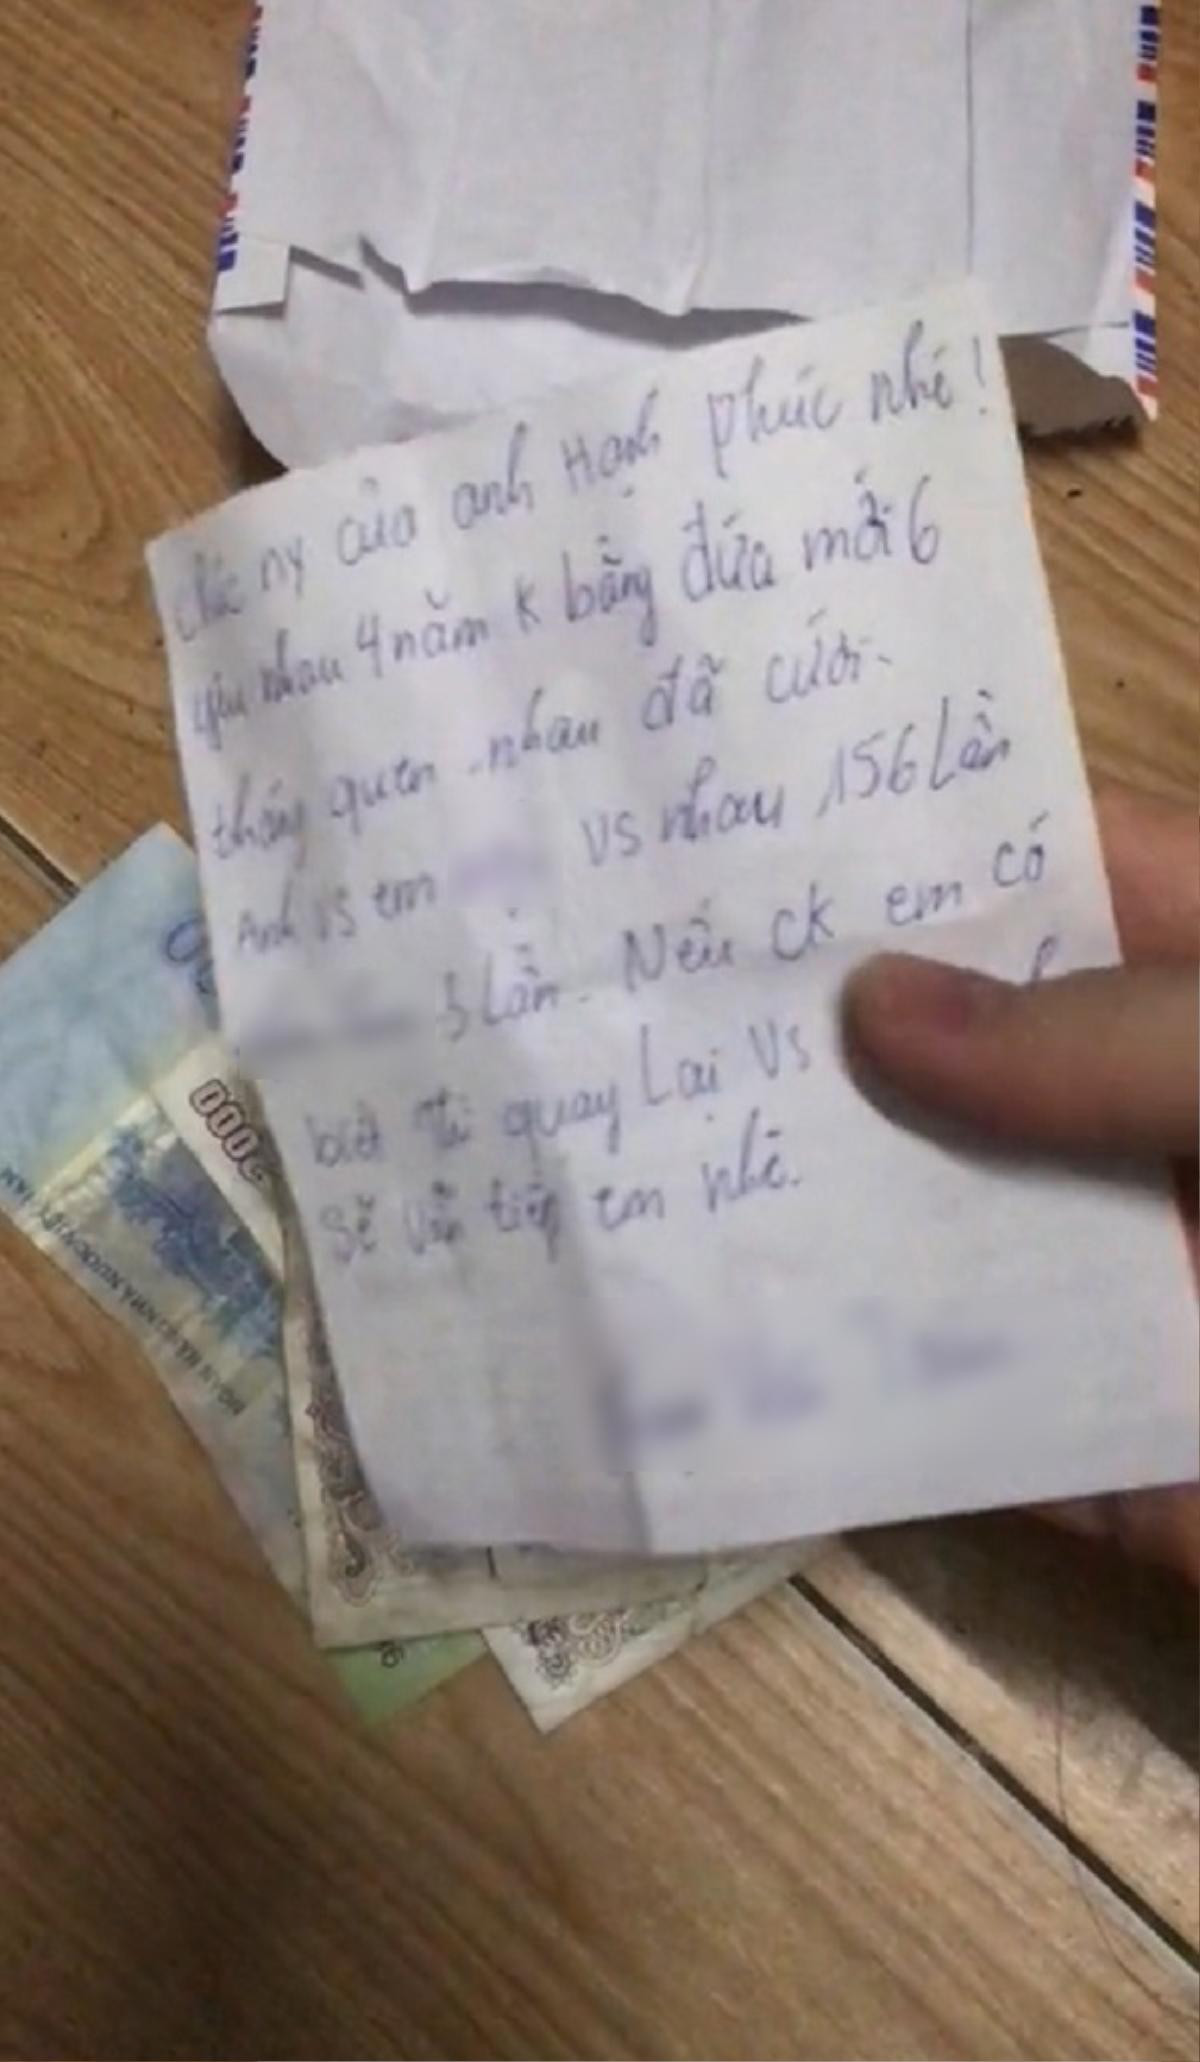 Chúc ny của anh Hạnh phúc nhé!
yêu nhau 4 năm K bằng đứa mới 6
tháng quen nhau đã cưới.
Anh vs em vs nhau 156 Lần
3 Lần. Nếu ck em có
biết thì quay Lại Vs
sẽ vẫn tiếp em nhé.
2000